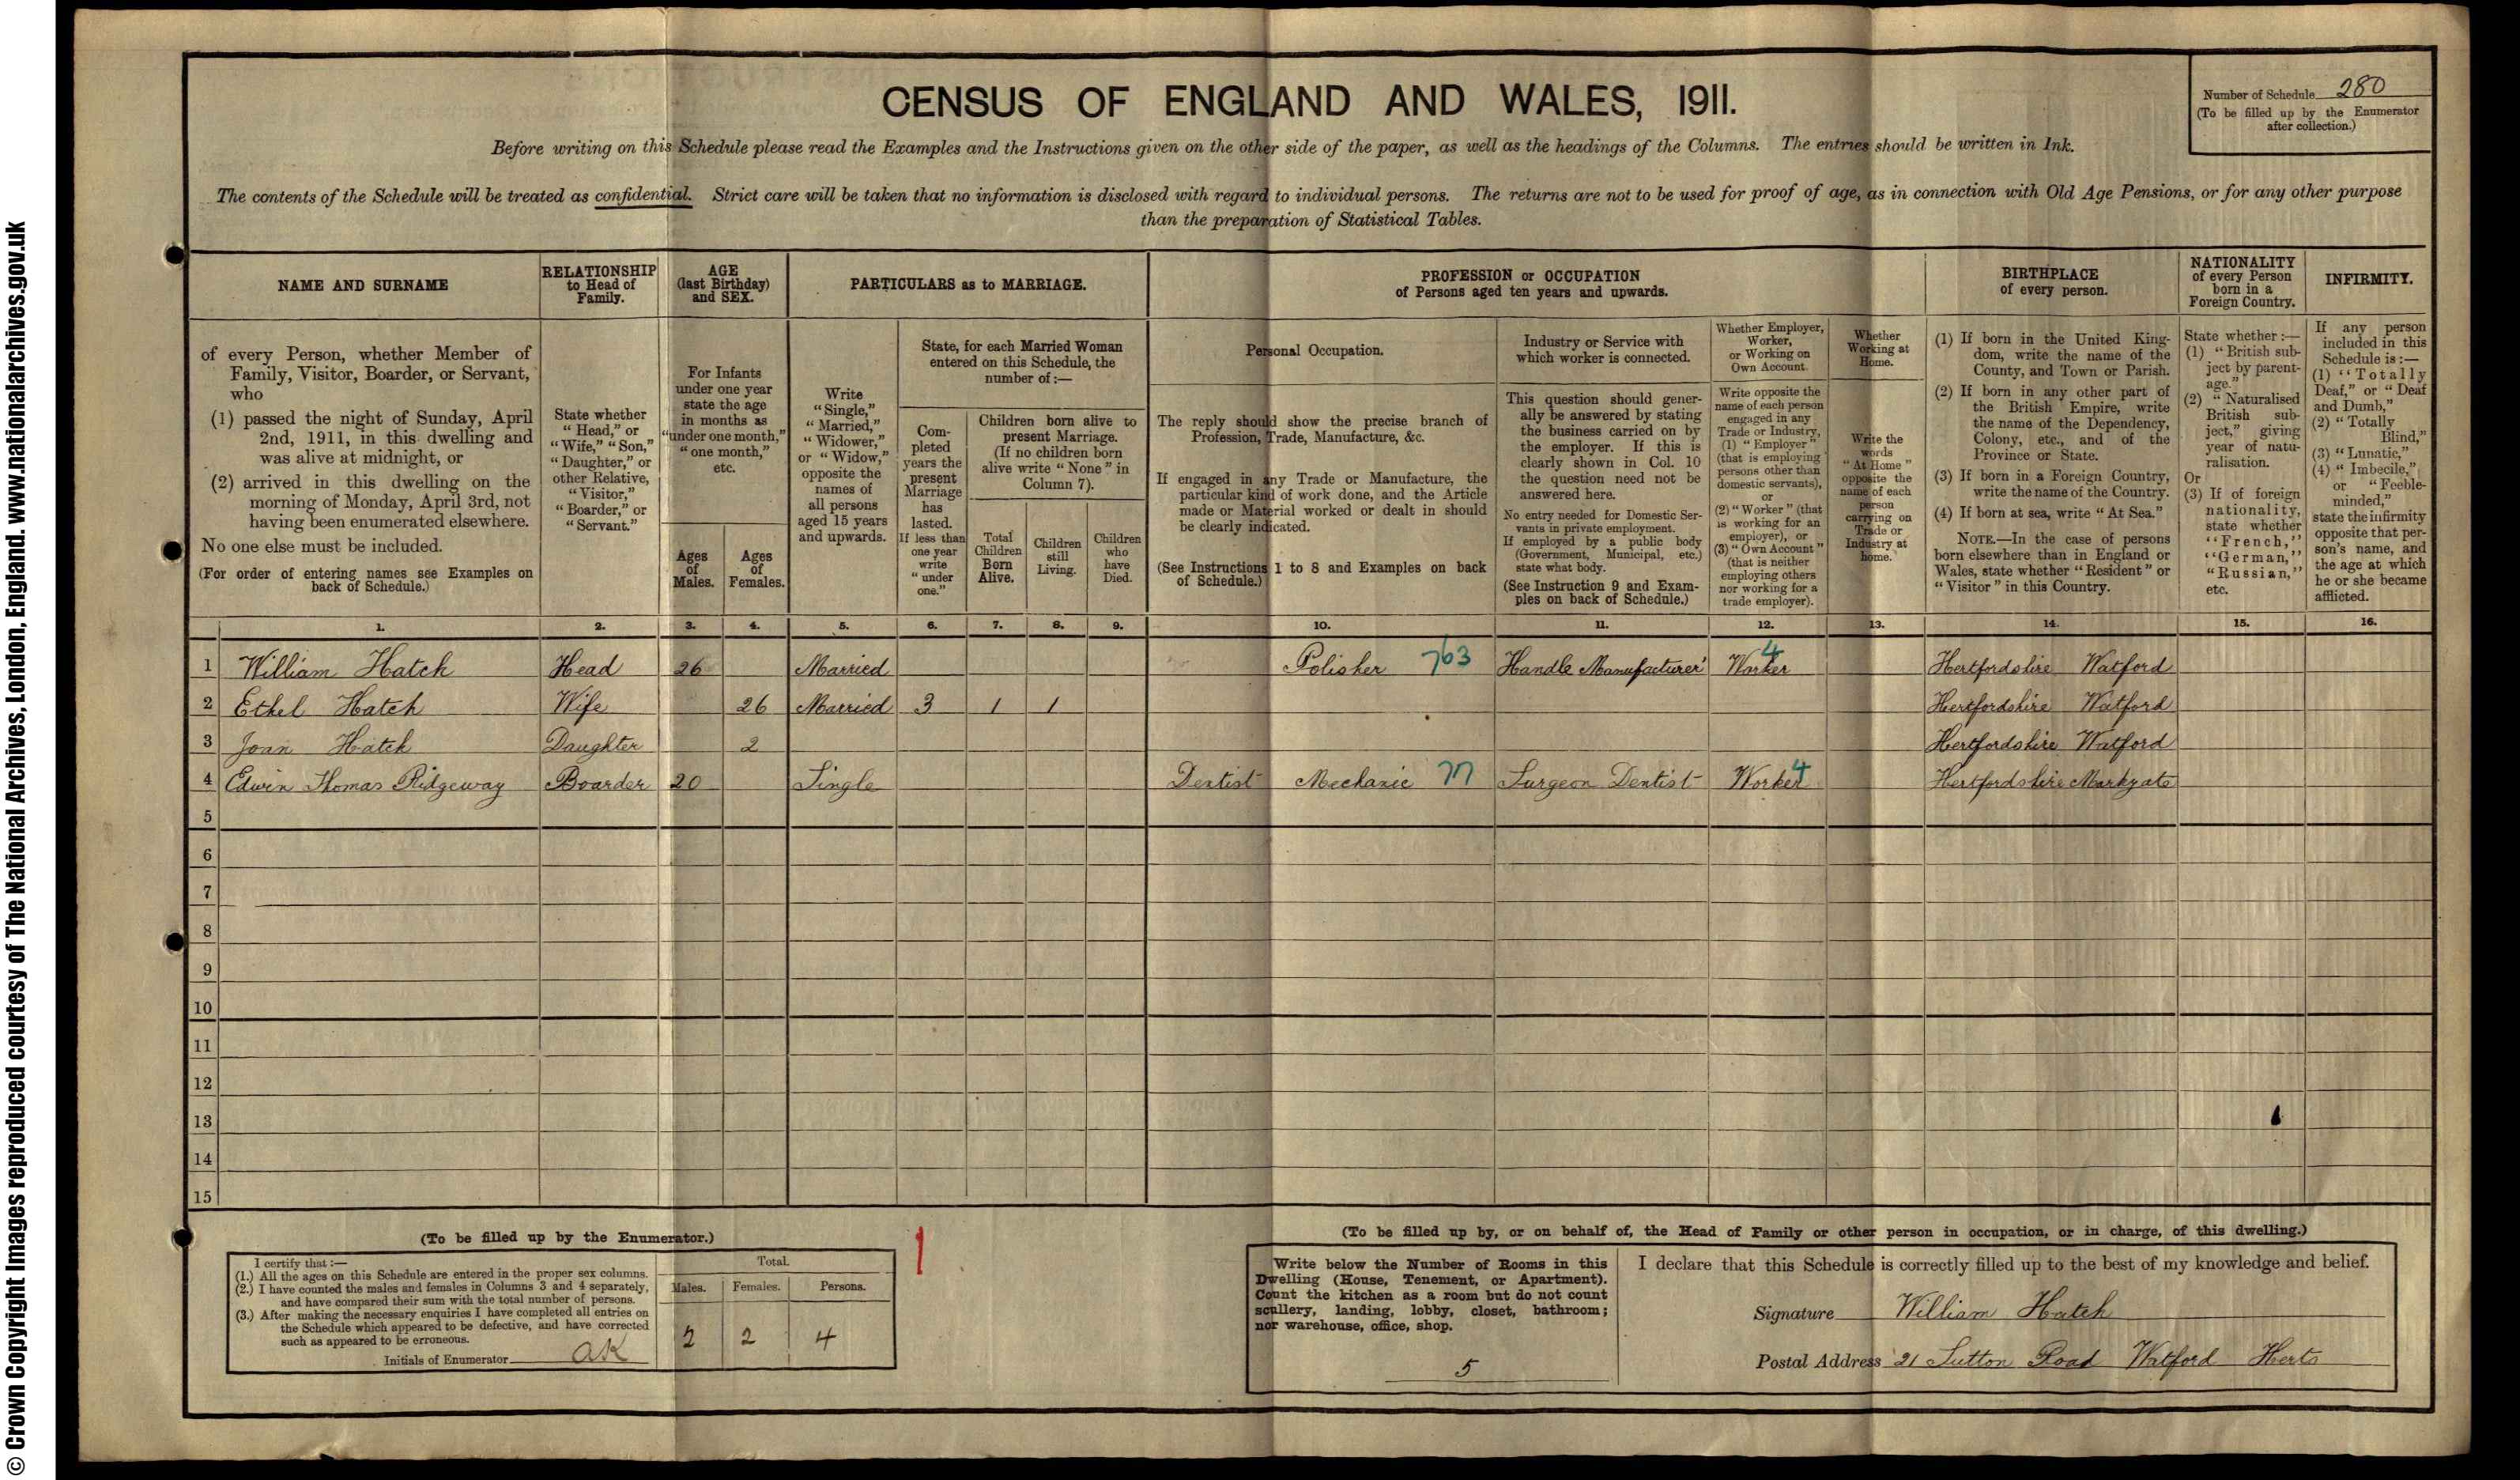 © Crown Copyright Images reproduced courtesy of The National Archives, London, England. www.nationalarchives.gov.uk
CENSUS OF ENGLAND AND WALES, 1911.
Number of Schedule 280
(To be filled up by the Enumerator
after collection.)
Before writing on this Schedule please read the Examples and the Instructions given on the other side of the paper, as well as the headings of the Columns. The entries should be written in Ink.
The contents of the Schedule will be treated as confidential. Strict care will be taken that no information is disclosed with regard to individual persons. The returns are not to be used for proof of age, as in connection with Old Age Pensions, or for any other purpose
than the preparation of Statistical Tables.
NAME AND SURNAME
of every Person, whether Member of
Family, Visitor, Boarder, or Servant,
who
(1) passed the night of Sunday, April
2nd, 1911, in this dwelling and
was alive at midnight, or
(2) arrived in this dwelling on the
morning of Monday, April 3rd, not
having been enumerated elsewhere.
No one else must be included.
(For order of entering names see Examples on
back of Schedule.)
RELATIONSHIP
to Head of
Family.
State whether
"Head," or
"Wife," "Son,"
"Daughter," or
other Relative,
"Visitor,"
"Boarder," or
"Servant."
AGE
(last Birthday)
and SEX.
For Infants
under one year
state the age
in months as
"under one month,"
"one month,"
etc.
Ages
of
Males.
Ages
of
Females.
PARTICULARS as to MARRIAGE.
Write
"Single,"
"Married,"
"Widower,"
or "Widow,"
opposite the
names of
all persons
aged 15 years
and upwards.
State, for each Married Woman
entered on this Schedule, the
number of:—
Com-
pleted
years the
present
Marriage
has
lasted.
If less than
one year
write
"under
one."
Children born alive to
present Marriage.
(If no children born
alive write "None" in
Column 7).
Total
Children
Born
Alive.
Children
still
Living.
Children
who
have
Died.
PROFESSION or OCCUPATION
of Persons aged ten years and upwards.
Personal Occupation.
The reply should show the precise branch of
Profession, Trade, Manufacture, &c.
If engaged in any Trade or Manufacture, the
particular kind of work done, and the Article
made or Material worked or dealt in should
be clearly indicated.
(See Instructions 1 to 8 and Examples on back
of Schedule.)
Industry or Service with
which worker is connected.
This question should gener-
ally be answered by stating
the business carried on by
the employer. If this is
clearly shown in Col. 10
the question need not be
answered here.
No entry needed for Domestic Ser-
vants in private employment.
If employed by a public body
(Government, Municipal, etc.)
state what body.
(See Instruction 9 and Exam-
ples on back of Schedule.)
Whether Employer,
Worker,
or Working on
Own Account.
Write opposite the
name of each person
engaged in any
Trade or Industry,
(1) "Employer"
(that is employing
persons other than
domestic servants),
or
(2) "Worker" (that
is working for an
employer), or
(3) "Own Account"
(that is neither
employing others
nor working for a
trade employer).
Whether
Working at
Home.
Write the
words
"At Home"
opposite the
name of each
person
carrying on
Trade or
Industry at
home.
BIRTHPLACE
of every person.
(1) If born in the United King-
dom, write the name of the
County, and Town or Parish.
(2) If born in any other part of
the British Empire, write
the name of the Dependency,
Colony, etc., and of the
Province or State.
(3) If born in a Foreign Country,
write the name of the Country.
(4) If born at sea, write "At Sea."
NOTE.—In the case of persons
born elsewhere than in England or
Wales, state whether "Resident" or
"Visitor" in this Country.
NATIONALITY
of every Person
born in a
Foreign Country.
State whether:—
(1) "British sub-
ject by parent-
age."
(2) "Naturalised
British sub-
ject," giving
year of natu-
ralisation.
Or
(3) If of foreign
nationality,
state whether
"French,"
"German,"
"Russian,"
etc.
INFIRMITY.
If any person
included in this
Schedule is:—
(1) "Totally
Deaf," or "Deaf
and Dumb,"
(2) "Totally
Blind,"
(3) "Lunatic,"
(4) "Imbecile,"
or "Feeble-
minded,"
state the infirmity
opposite that per-
son's name, and
the age at which
he or she became
afflicted.
1. 2. 3. 4. 5. 6. 7. 8. 9. 10. 11. 12. 13. 14. 15. 16.
1 William Hatch Head 26 Married Polisher 763 Handle Manufacturer Worker 4 Hertfordshire Watford
2 Ethel Hatch Wife 26 Married 3 1 1 Hertfordshire Watford
3 Joan Hatch Daughter 2 Hertfordshire Watford
4 Edwin Thomas Ridgeway Boarder 20 Single Dentist Mechanic 77 Surgeon Dentist Worker 4 Hertfordshire Markyate
5
6
7
8
9
10
11
12
13
14
15
(To be filled up by the Enumerator.)
I certify that:—
(1.) All the ages on this Schedule are entered in the proper sex columns.
(2.) I have counted the males and females in Columns 3 and 4 separately,
and have compared their sum with the total number of persons.
(3.) After making the necessary enquiries I have completed all entries on
the Schedule which appeared to be defective, and have corrected
such as appeared to be erroneous.
Initials of Enumerator AK
Total.
Males. Females. Persons.
2 2 4
1
(To be filled up by, or on behalf of, the Head of Family or other person in occupation, or in charge, of this dwelling.)
Write below the Number of Rooms in this
Dwelling (House, Tenement, or Apartment).
Count the kitchen as a room but do not count
scullery, landing, lobby, closet, bathroom;
nor warehouse, office, shop.
5
I declare that this Schedule is correctly filled up to the best of my knowledge and belief.
Signature William Hatch
Postal Address 21 Sutton Road Watford Herts